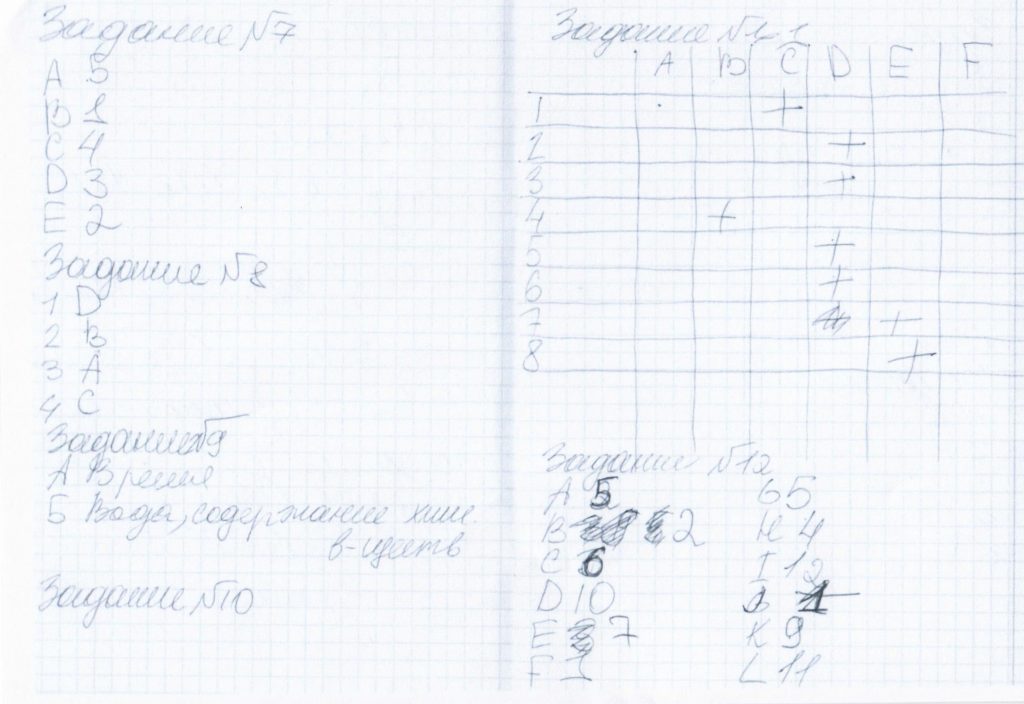 Задание №7
A 5
B 1
C 4
D 3
E 2
Задание №8
1 D
2 B
3 A
4 C
Задание №9
А Время
Б Вода, содержание хим.
в-ществ
Задание №10
Задание №11
A B C D E F
1 +
2 +
3 +
4 +
5 +
6 +
7 +
8 +
Задание №12
A 5
B 2
C 6
D 10
E 7
F 1
G 5
H 4
I 12
J
K 9
L 11